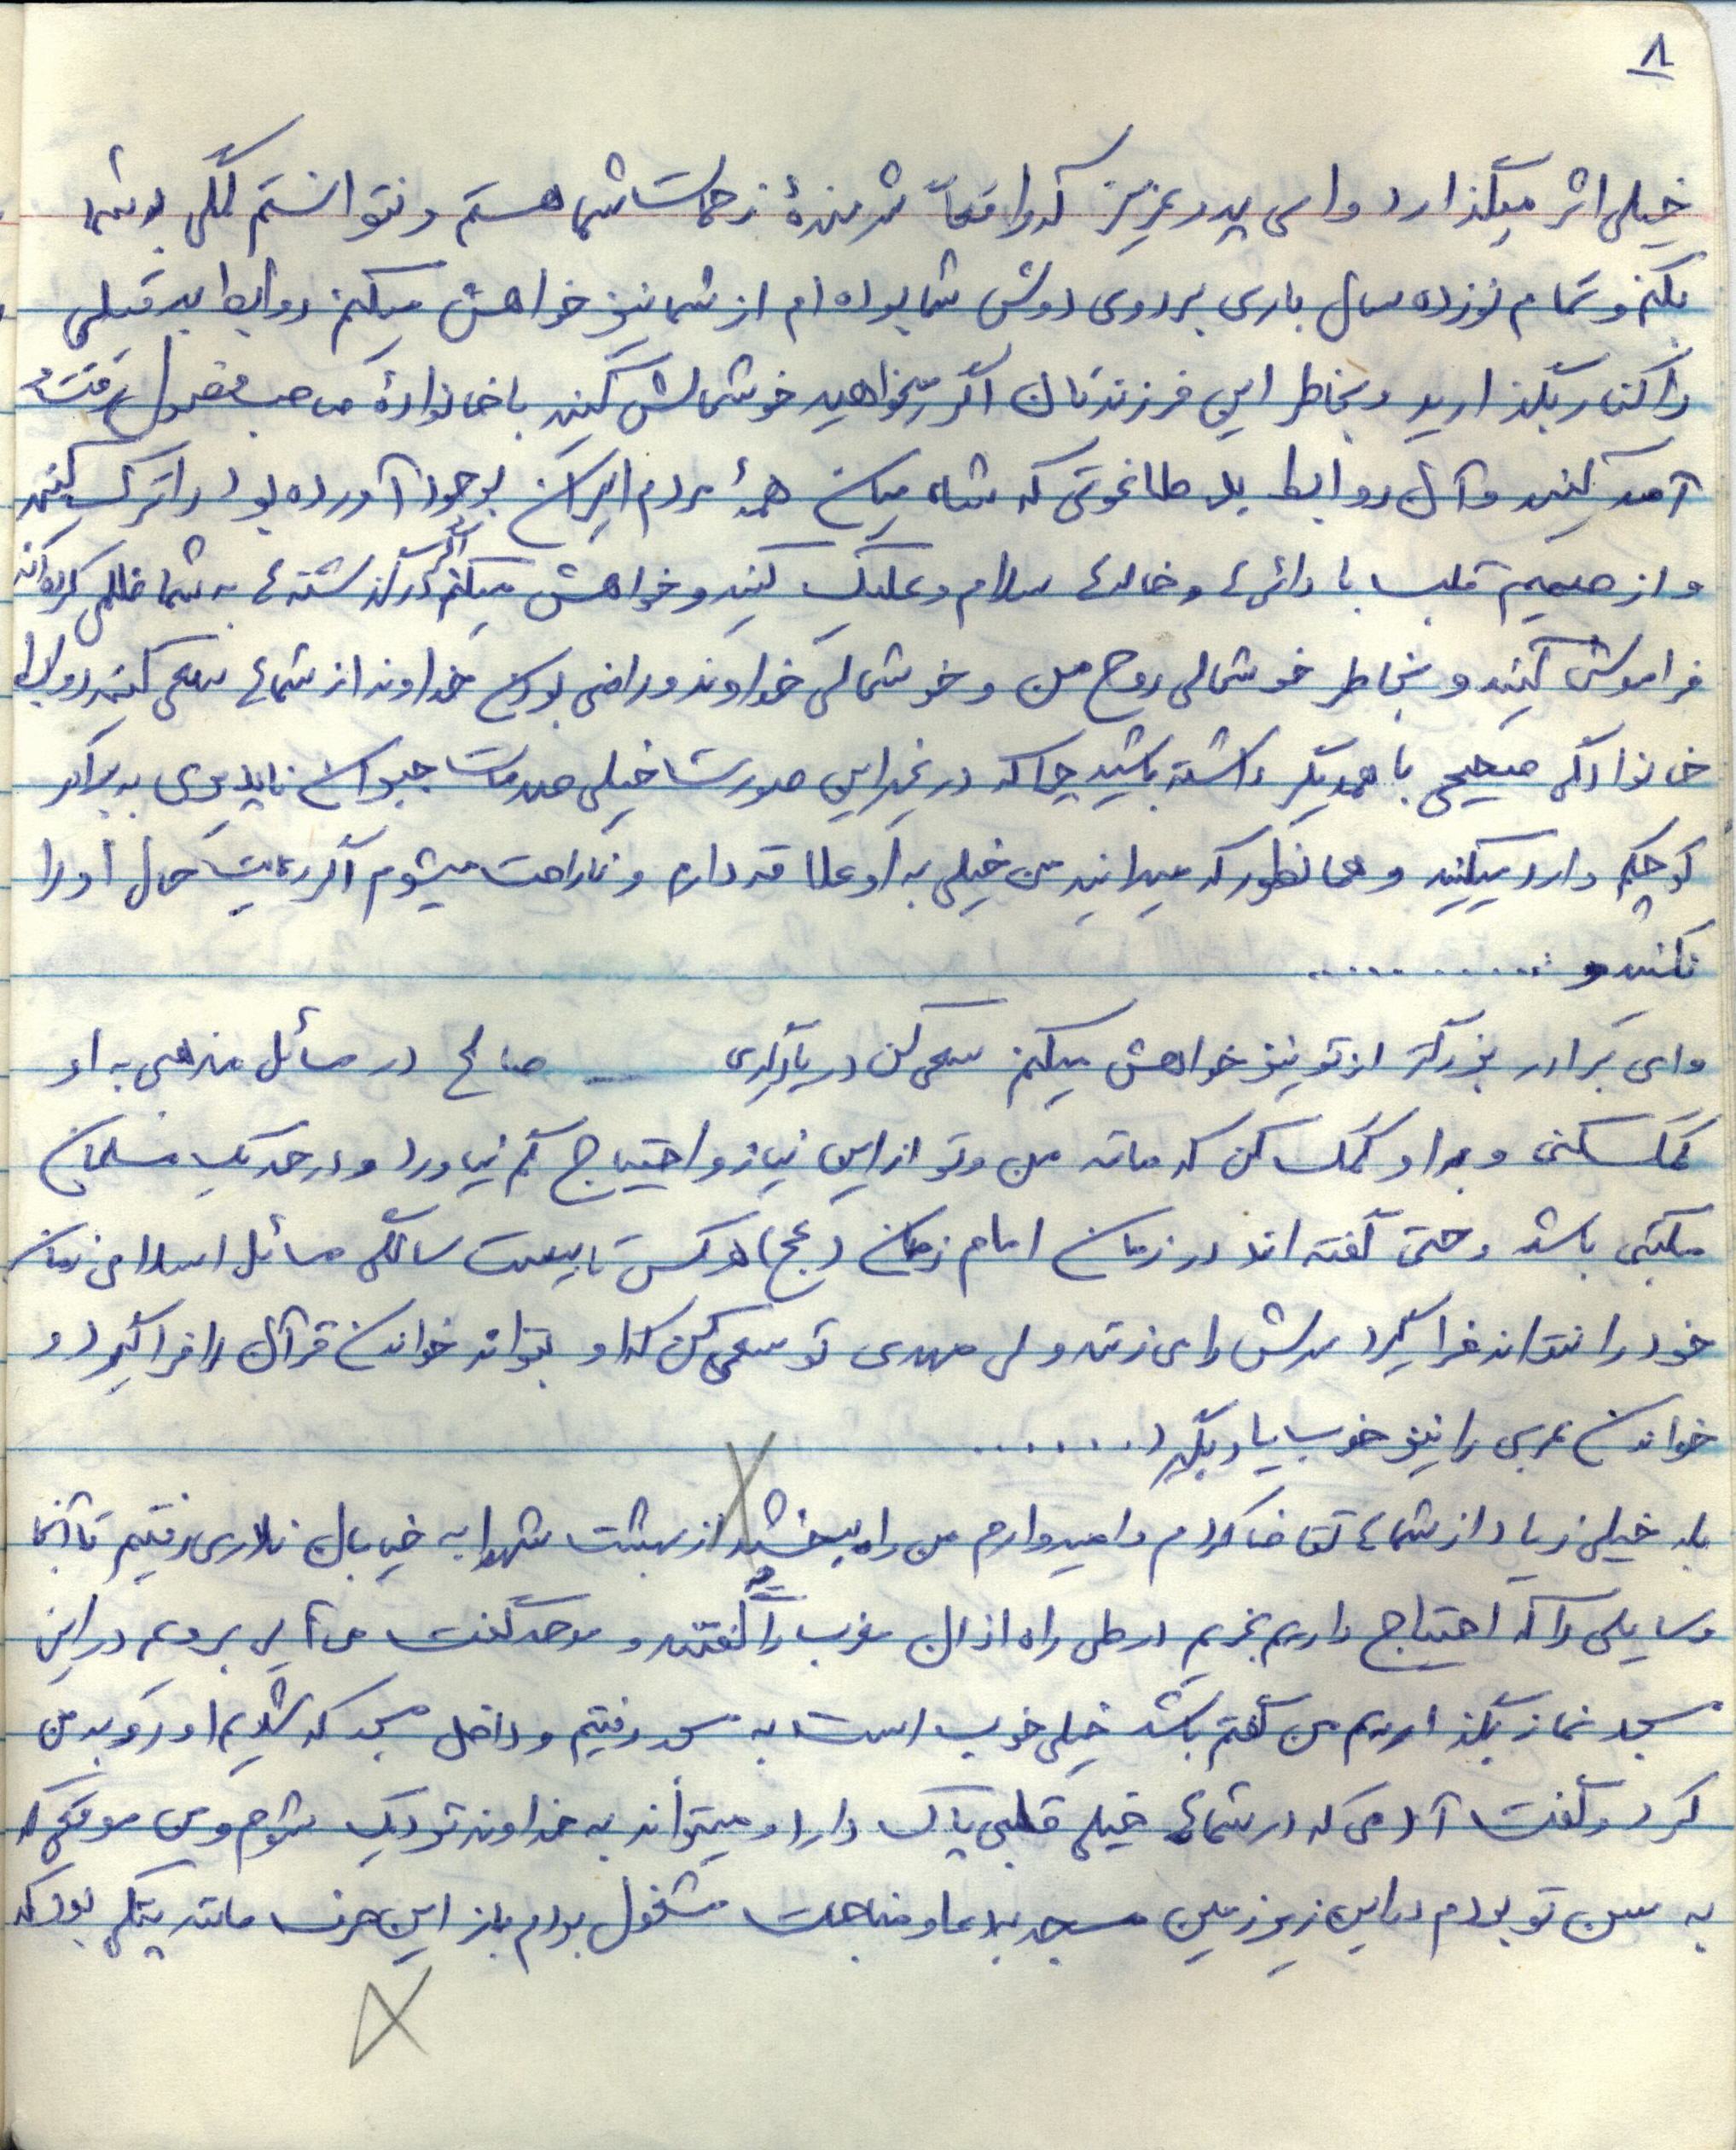 ۸
خیلی اثر میگذارد و ای پدر عزیز که واقعاً شرمندهٔ زحمات شما هستم و نتوانستم کمکی به شما
بکنم و تمام نوزده سال باری بر روی دوش شما بوده ام از شما نیز خواهش میکنم روابط بد قبلی
را کنار بگذارید و بخاطر این فرزندتان اگر میخواهید خوشحالش کنید با خانوادهٔ صاحب فصول رفت و
آمد کنید و آن روابط بد طاغوتی که شاه میان همهٔ مردم ایران بوجود آورده بود را ترک کنید
و از صمیم قلب با دائی و خاله سلام و علیک کنید و خواهش میکنم اگر در گذشته به شما ظلمی کرده اند
فراموش کنید و بخاطر خوشحالی روح من و خوشحالی خداوند و راضی بودن خداوند از شما سعی کنید روابط
خانوادگی صحیحی با همدیگر داشته باشید چرا که در غیر این صورت خیلی صدمات جبران ناپذیری به برادر
کوچکم وارد میکنید و همانطور که میدانید من خیلی به او علاقه دارم و ناراحت میشوم اگر رعایت حال او را
نکنید و ..........
و ای برادر بزرگتر از تو نیز خواهش میکنم سعی کن در یادگیری صالح در مسائل مذهبی به او
کمک کنی و به او کمک کن که مانند من و تو از این نیاز و احتیاج کم نیاورد و در حد یک مسلمان
مکتبی باشد و حتی گفته اند در زمان امام زمان (عج) هر کس تا بیست سالگی مسائل اسلامی زمان
خود را نتواند فرا گیرد سرش را می زنند ولی مهدی تو سعی کن که او بتواند خواندن قرآن را فرا گیرد و
خواندن عربی را نیز خوب یاد بگیرد .......
بله خیلی زیاد از شما تقاضا کردم و امیدوارم من را ببخشید از بهشت شهدا به خیابان نادری رفتیم تا آنجا
وسایلی را که احتیاج داریم بخریم در طی راه اذان مغرب را گفتند و موحد گفت می آیی برویم در این
مسجد نماز بگذاریم من گفتم باشد خیلی خوب است به مسجد رفتیم و داخل مسجد که شدیم او رو به من
کرد و گفت آدمی که در سن شما خیلی قلبی پاک دارد و میتواند به خداوند نزدیک شود و من موقعی که
به سن تو بودم در این زیرزمین مسجد به دعا و مناجات مشغول بودم باز این حرف مانند پتکی بود که